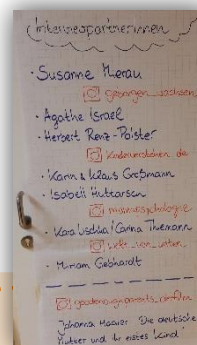 Interviewpartnerinnen
· Susanne Merau
gesorgen_wachsen
· Agathe Israel
· Herbert Renz-Polster
kinderverstehen.de
· Karin & Klaus Großmann
· Isabell Huttarsch
mamapsychologie
· Kara Uschka / Carina Thiemann
welt_von_unten
· Miriam Gebhardt
Johanna Haarer "Die deutsche
Mutter und ihr erstes Kind"